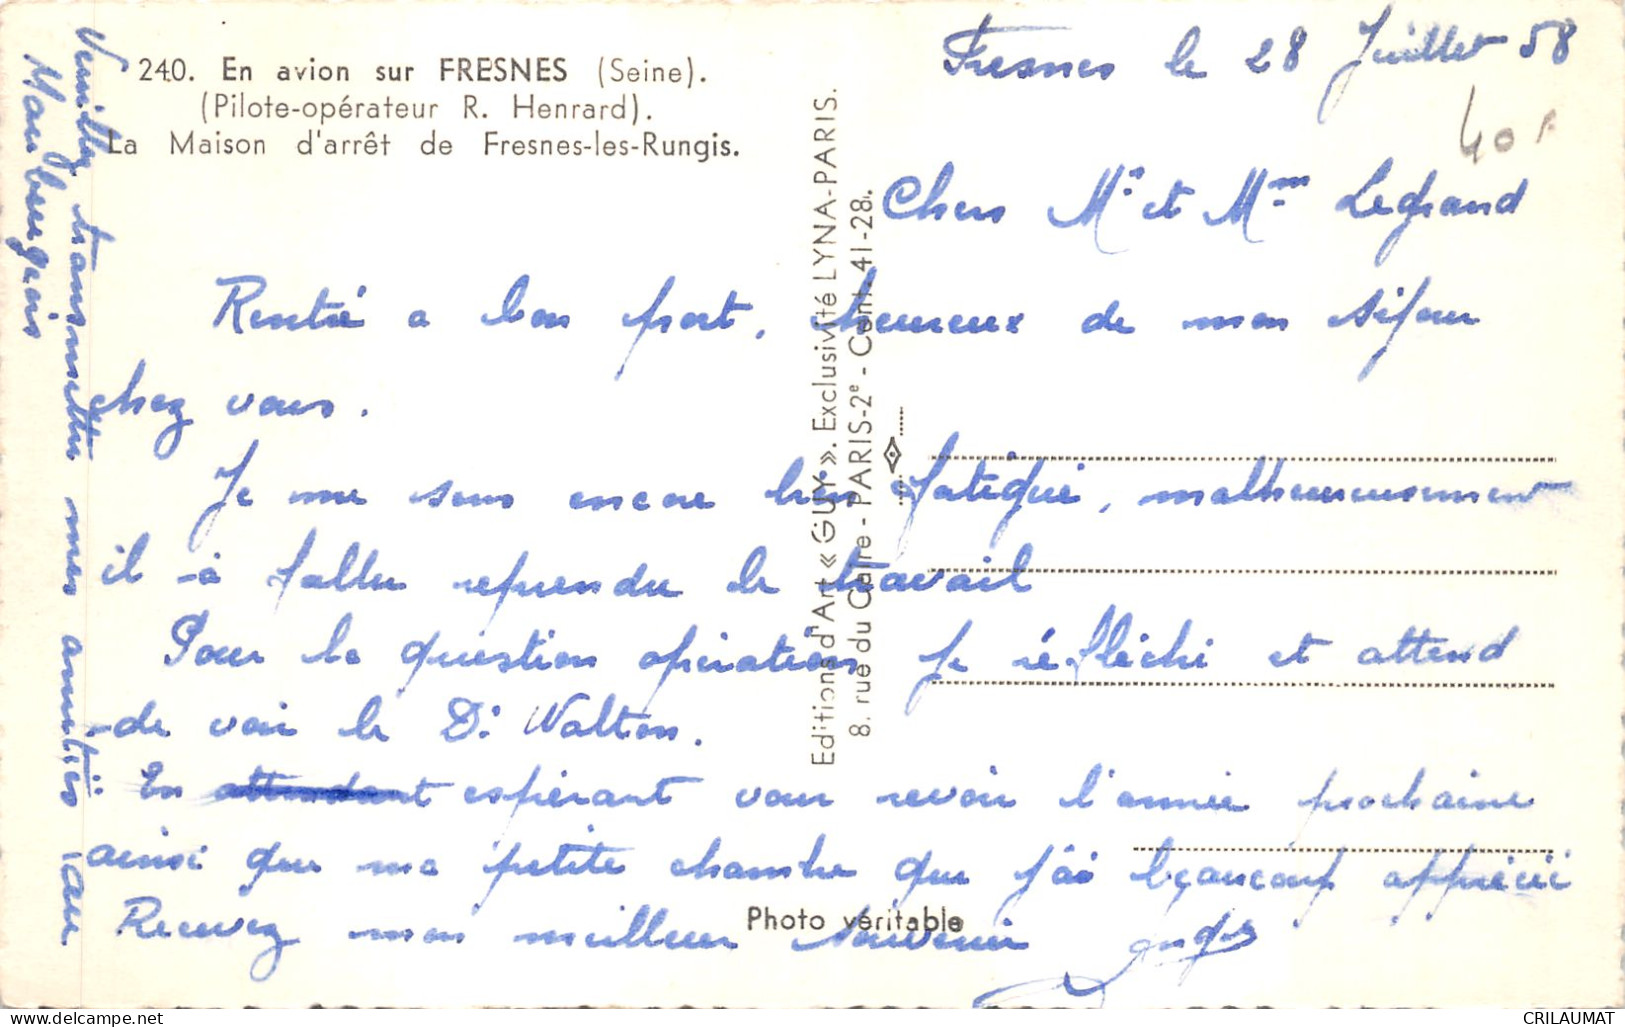 240. En avion sur FRESNES (Seine).
(Pilote-opérateur R. Henrard).
La Maison d'arrêt de Fresnes-les-Rungis.
Fresnes le 28 Juillet 58
40F
Chers Mr et Mme Legrand
Rentré a bon port, heureux de mon séjour
chez vous.
Je me sens encore bien fatigué, malheureusement
il à fallu reprendre le travail
Pour la question opération je réfléchi et attend
de voir le Dr Walton.
En attendant espérant vous revoir l'année prochaine
ainsi que ma petite chambre que j'ai beaucoup apprécié
Recevez mon meilleur souvenir
Veuillez transmettre mes amitiés au
Maubeugeois
Editions d'Art « GUY ». Exclusivité LYNA-PARIS.
8, rue du Caire - PARIS-2e - Cent. 41-28.
Photo véritable
delcampe.net
CRILAUMAT